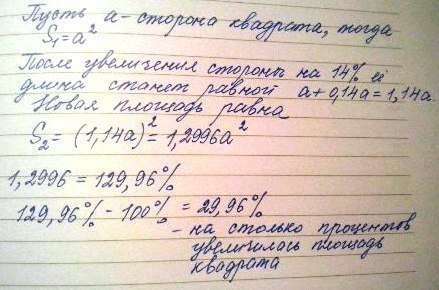 Пусть a - сторона квадрата, тогда
S₁=a²
После увеличения стороны на 14% её
длина станет равной a+0,14a=1,14a.
Новая площадь равна
S₂=(1,14a)²=1,2996a²
1,2996=129,96%
129,96%-100%=29,96%
- на столько процентов
увеличилась площадь
квадрата